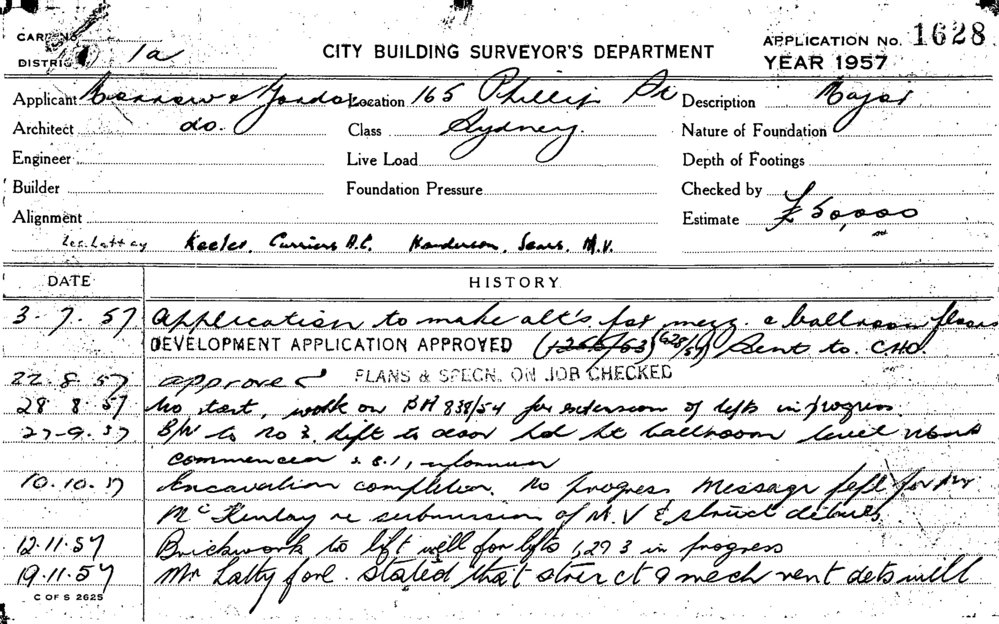 CARD No.
DISTRICT 1a
CITY BUILDING SURVEYOR'S DEPARTMENT
APPLICATION No. 1628
YEAR 1957
Applicant & Location 165 Phillip St Description Major
Architect do. Class Sydney. Nature of Foundation
Engineer Live Load Depth of Footings
Builder Foundation Pressure Checked by
Alignment Estimate £50,000
Keeler, Curriers A.C. Henderson, Sears, M.V.
DATE HISTORY
3.7.57 Application to make alt's for mezz. & ballroom floors
DEVELOPMENT APPLICATION APPROVED (628/57) Sent to. CHO.
22.8.57 approved PLANS & SPECN. ON JOB CHECKED
28.8.57 No start, work on BA 838/54 for extension of lifts in progress.
27-9.57 B/W to No 3. lift to door hd ht ballroom level
commenced
10.10.57 Excavation completed. No progress Message left for Mr
McKinlay re submission of M.V & struct details
12.11.57 Brickwork to lift well for lifts 1, 2 & 3 in progress
19.11.57 Mr Latty forl. stated that struct & mech vent dets will
C OF S 2625